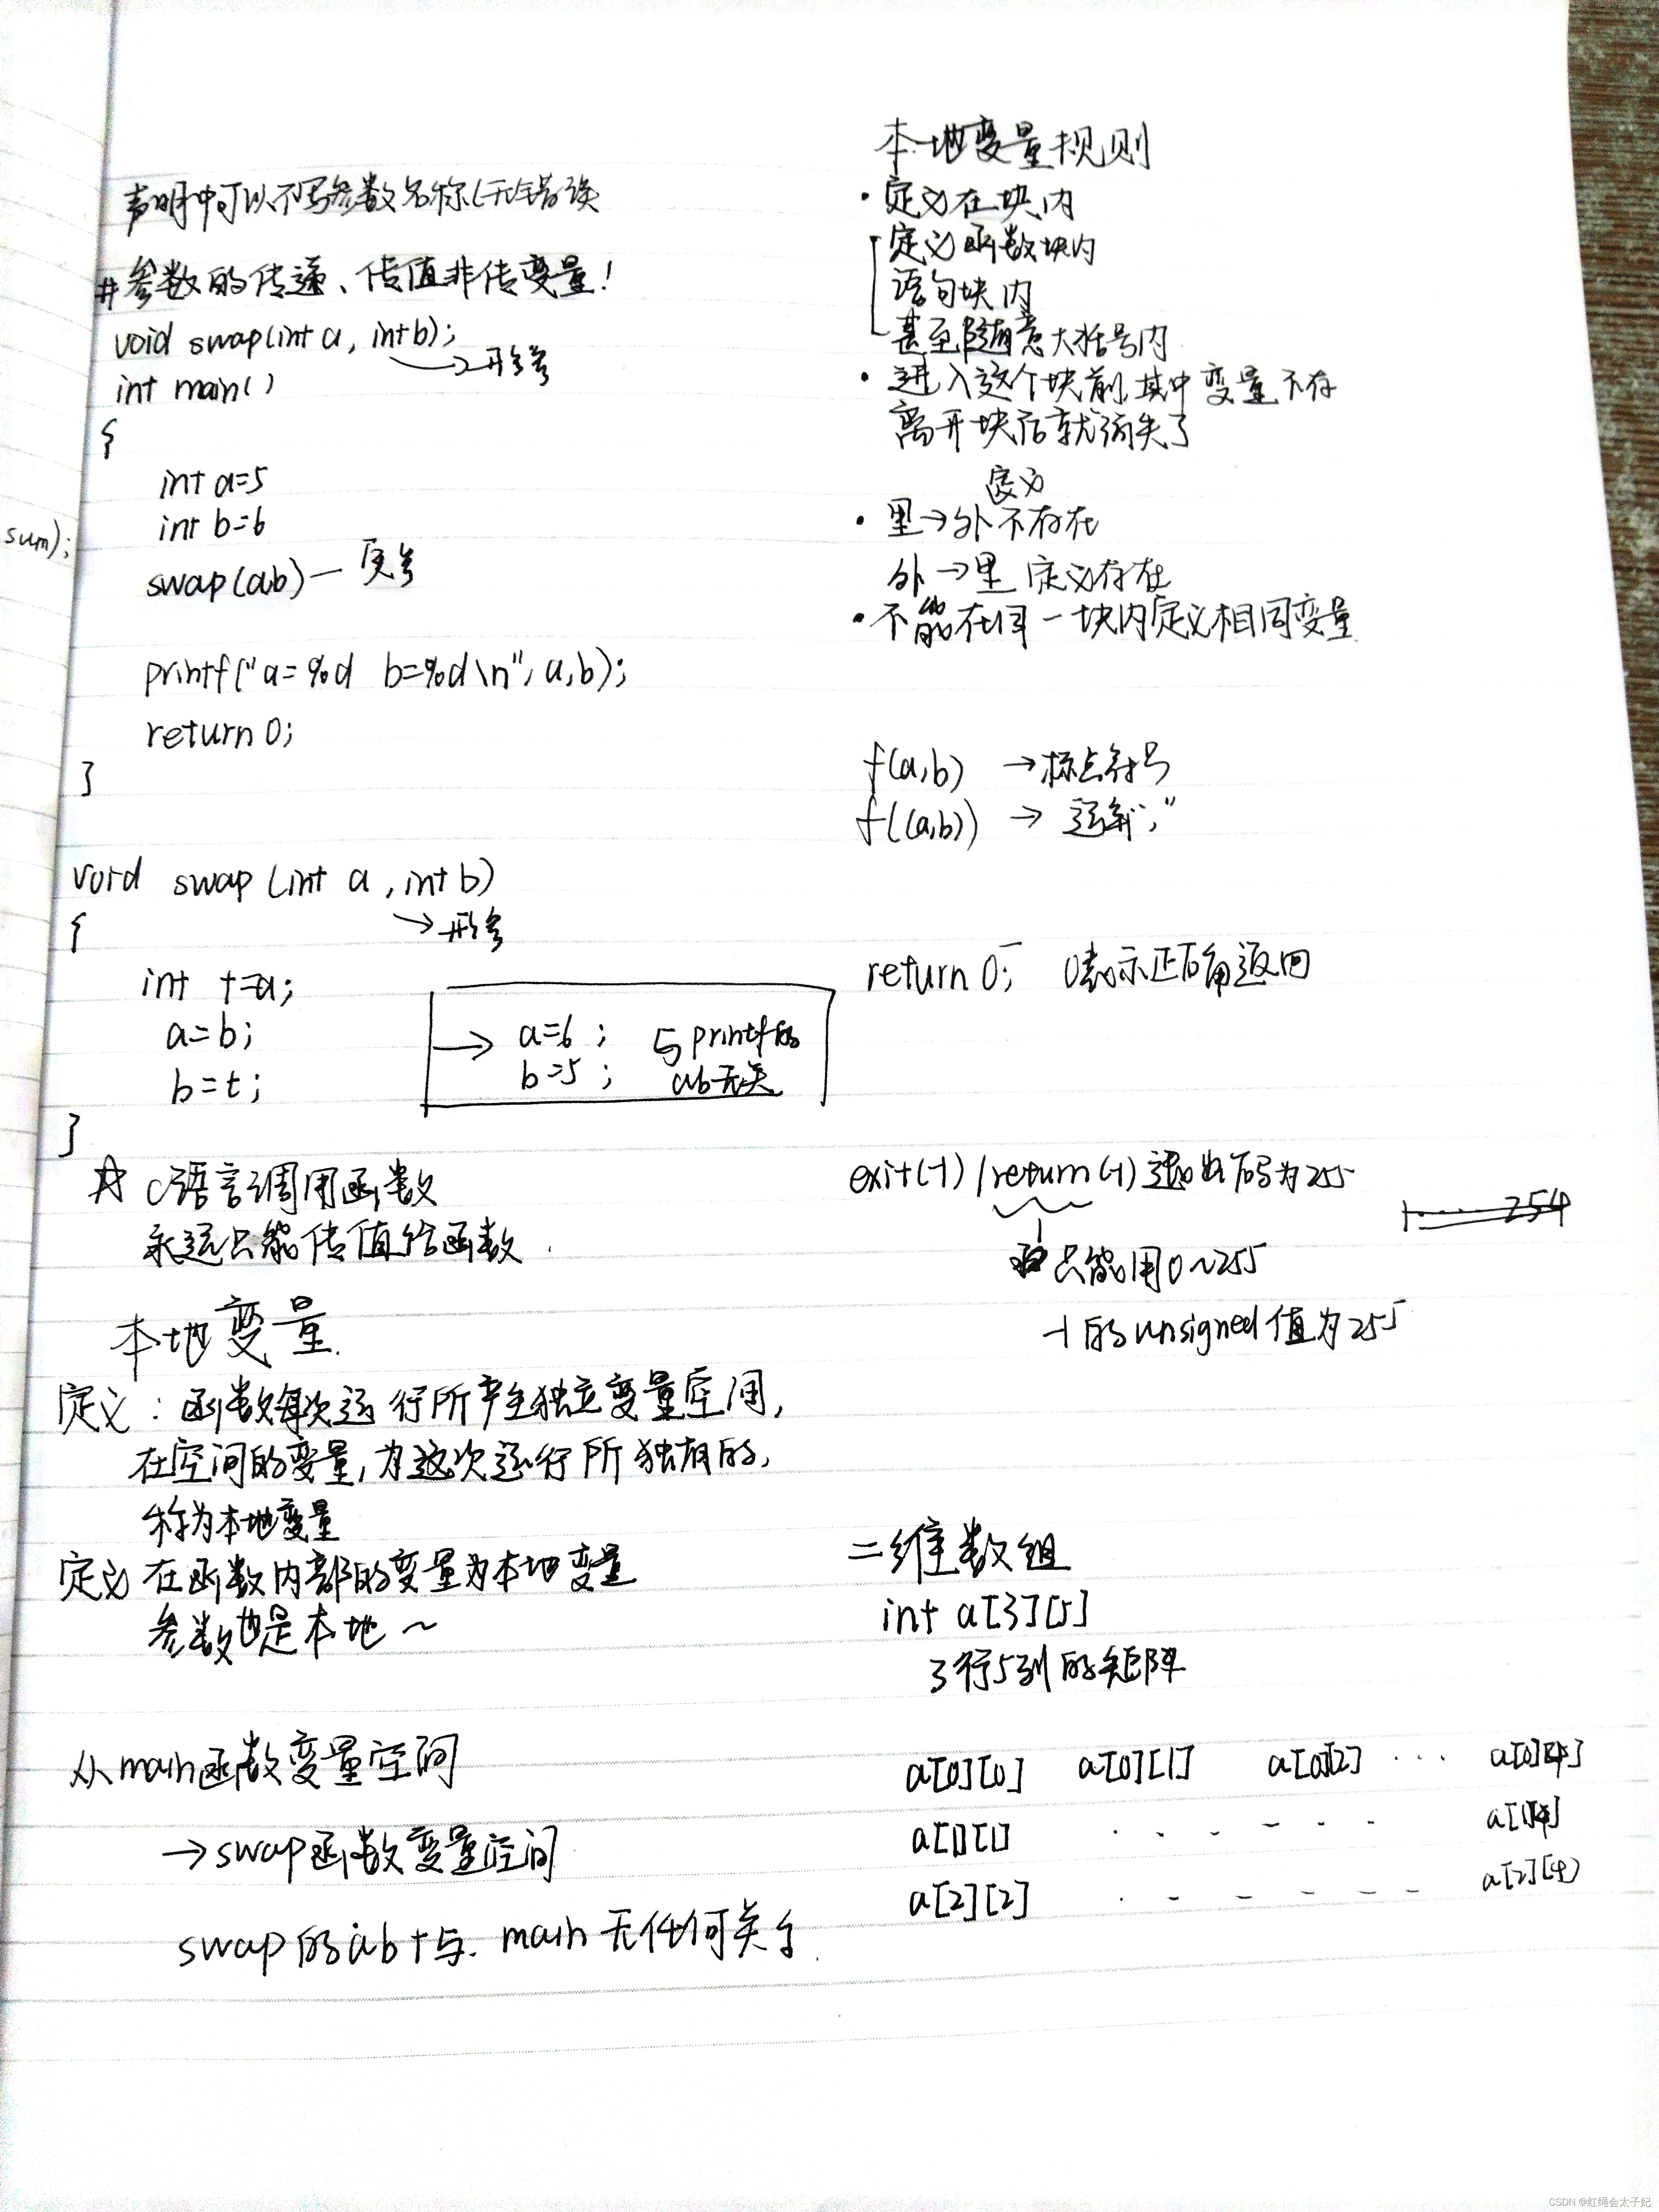 声明中可以不写参数名称(无错误
#参数的传递、传值非传变量!
void swap(int a, int b);
→形参
int main()
{
int a=5
int b=6
swap(a,b) — 实参
printf("a=%d b=%d\n", a,b);
return 0;
}
void swap (int a, int b)
→形参
{
int t=a;
a=b;
b=t;
→ a=6 ; 与printf的
b=5 ; ab无关
}
☆ C语言调用函数
永远只能传值给函数.
本地变量.
定义:函数每次运行所产生独立变量空间,
在空间的变量,为这次运行所独有的,
称为本地变量
定义在函数内部的变量为本地变量
参数也是本地~
从main函数变量空间
→swap函数变量空间
swap的abt与.main无任何关系.
sum);
本地变量规则
·定义在块内
定义函数块内
语句块内
甚至随意大括号内
·进入这个块前,其中变量不存
离开块后就消失了
定义
·里→外不存在
外→里 定义存在
·不能在同一块内定义相同变量
f(a,b) →标点符号
f((a,b)) → 运算","
return 0; 0表示正确返回
exit(-1) / return(-1) 退出码为255
只能用0~255
-1的unsigned值为255
1....254
二维数组
int a[3][5]
3行5列的矩阵
a[0][0] a[0][1] a[0][2] ··· a[0][4]
a[1][1] ······ a[1][4]
a[2][2] ······ a[2][4]
CSDN @红绳会太子妃